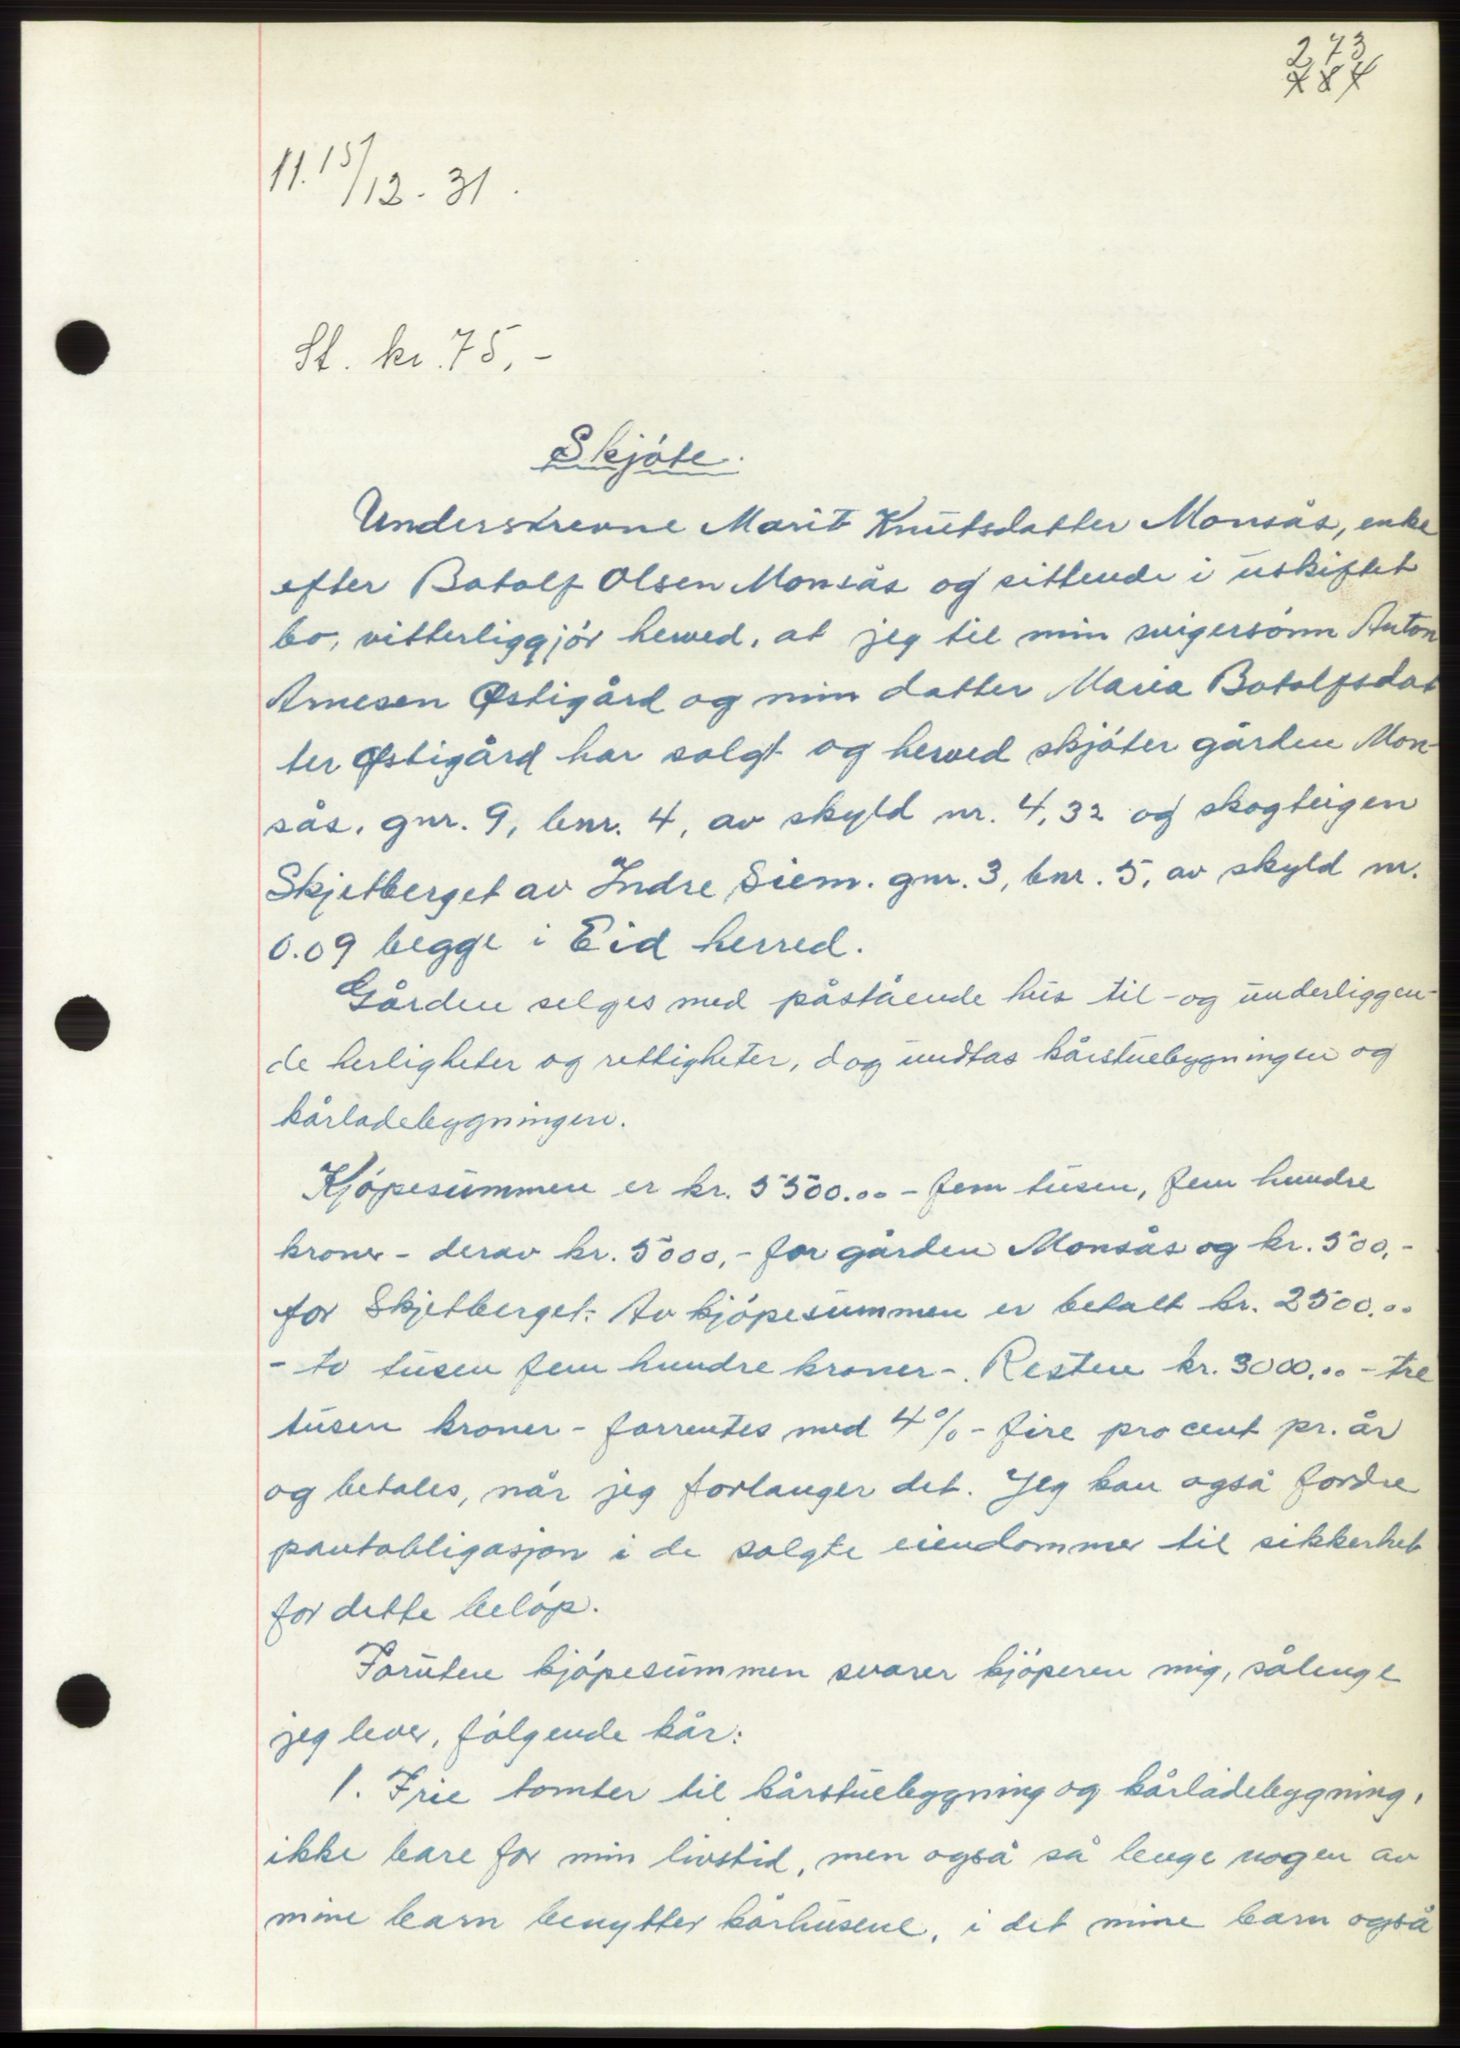 273
784
11. 15/12-31.
St. kr. 75,-
Skjóte.
Underskrevne Marit Knutsdatter Monsås, enke
efter Botolf Olsen Monsås og sittende i uskiftet
bo, vitterliggjór herved, at jeg til min svigersónn Anton
Arnesen Østigård og min datter Maria Botolfsdat
ter Østigård har solgt og herved skjóter gården Mon-
sås, gnr. 9, bnr. 4, av skyld nr. 4,32 og skogteigen
Skjetberget av Indre Siem. gnr. 3, bnr. 5, av skyld nr.
0.09 begge i Eid herred.
Gården selges med påstående hus til- og underliggen-
de herligheter og rettigheter, dog undtas kårstuebygningen og
kårladebygningen.
Kjópesummen er kr. 5500.00 - fem tusen, fem hundre
kroner - derav kr. 5000,- for gården Monsås og kr. 500,-
for Skjetberget. Av kjópesummen er betalt kr. 2500.00
- to tusen fem hundre kroner-. Resten kr. 3000.00 - tre
tusen kroner - forrentes med 4% - fire procent pr. år
og betales, når jeg forlanger det. Jeg kan også fordre
pantobligasjon i de solgte eiendommer til sikkerhet
for dette belóp.
Foruten kjópesummen svarer kjóperen mig, sålenge
jeg lever, fólgende kår:
1. Frie tomter til kårstuebygning og kårladebygning,
ikke bare for min livstid, men også så lenge nogen av
mine barn benytter kårhusene, i det mine barn også